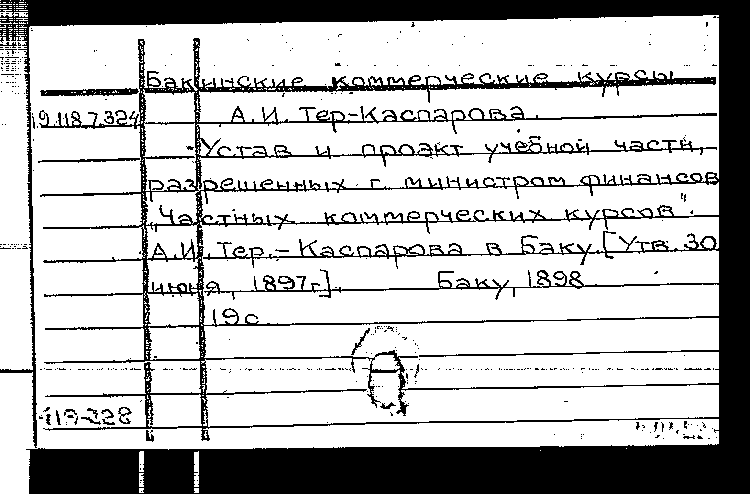 Бакинские коммерческие курсы
19.118.7.324 А.И. Тер-Каспарова.
Устав и проэкт учебной части,
разрешенных г. министром финансов
"Частных коммерческих курсов".
А.И. Тер.-Каспарова в Баку. [Утв. 30
июня, 1897г]. Баку, 1898
19с.
119-228